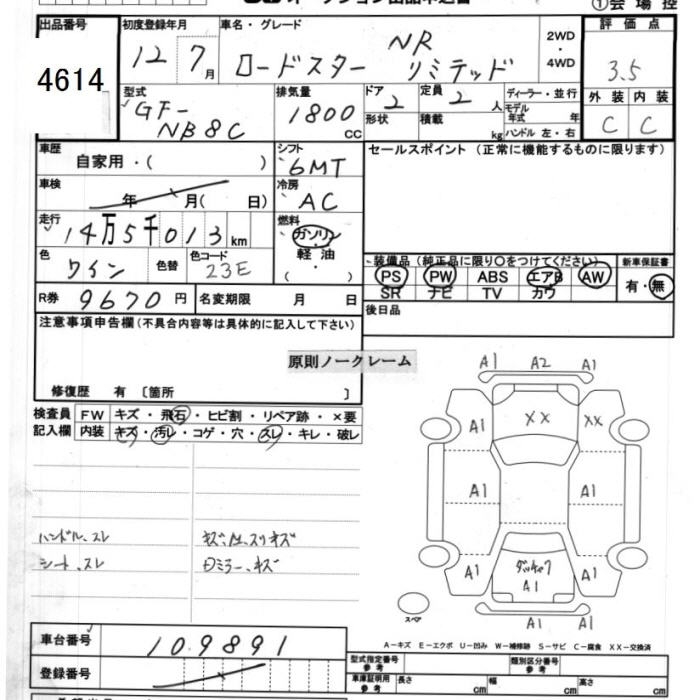 ① 会場控
出品番号
4614
初度登録年月
12 7月
車名・グレード
NR
ロードスター リミテッド
2WD
・
4WD
評価点
3.5
外装 内装
C C
型式
GF-
NB8C
排気量
1800
CC
ドア 2
形状
定員 2 人
積載 kg
ディーラー・並行
モデル
年式 年
ハンドル 左・右
車歴
自家用・( )
シフト
6MT
セールスポイント (正常に機能するものに限ります)
車検
年 月( 日)
冷房
AC
走行
14万5千013 km
燃料
ガソリン
軽油
( ・ )
色
ワイン
色替
色コード
23E
装備品 (純正品に限り○をつけてください)
PS PW ABS エアB AW
SR ナビ TV カワ
新車保証書
有・無
R券 9670円
名変期限 月 日
後日品
注意事項申告欄 (不具合内容等は具体的に記入して下さい)
原則ノークレーム
修復歴 有 〔箇所 〕
検査員
記入欄
FW キズ・飛石・ヒビ割・リペア跡・×要
内装 キズ・汚レ・コゲ・穴・スレ・キレ・破レ
ハンドル、スレ
シート、スレ
スリキズ
ミラー、キズ
A1 A2 A1
A1 XX XX
A1 A1
A1 A1 A1
A1 A1
スペア
A-キズ E-エクボ U-凹み W-補修跡 S-サビ C-腐食 XX-交換済
車台番号
109891
登録番号
型式指定番号
参考
類別区分番号
参考
車庫証明用
参考
長さ cm
幅 cm
高さ cm